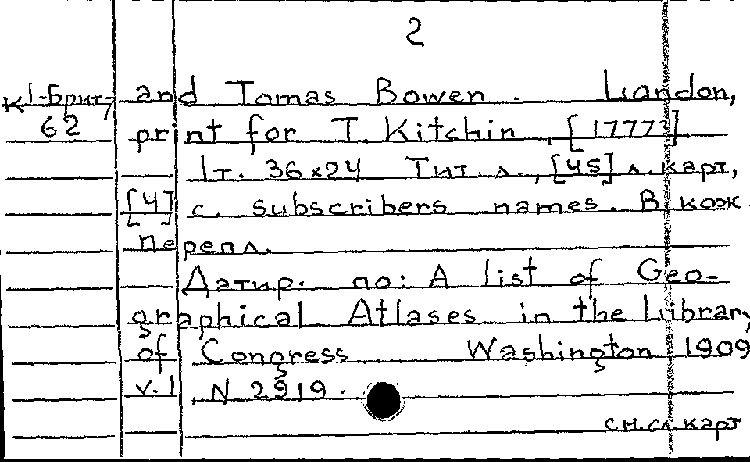 2
and Tomas Bowen. London,
К1-Брит, 62
print for T. Kitchin, [1777?]
1т. 36x24 Тит. л., [45] л. карт,
[4] с. subscribers names. В кож.
перепл.
Датир. по: A list of Geo-
graphical Atlases in the Librar,
of Congress Washington 1909
v.1, N 2919.
см. сл. карт